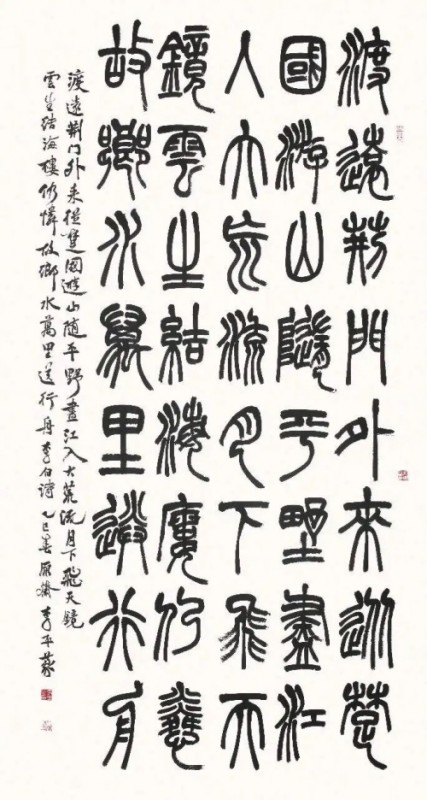 渡遠荊門外來從楚
國游山隨平野盡江
入大荒流月下飛天
鏡雲生結海樓仍憐
故鄉水萬里送行舟
渡遠荊門外来從楚國遊山随平野盡江入大荒流月下飛天鏡
雲生結海樓仍憐故鄉水萬里送行舟李白詩乙巳李平